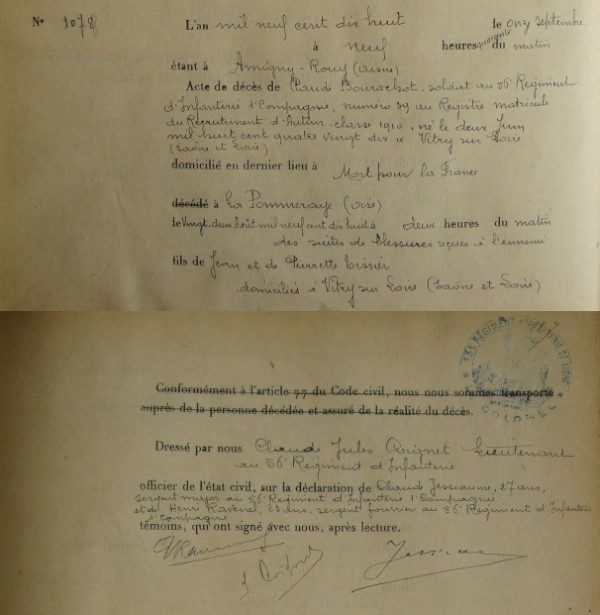 N° 1078
L'an mil neuf cent dix huit le onze septembre
à neuf heures quarante du matin
étant à Amigny-Rouy (Aisne)
Acte de décès de Claude Bourachot, soldat au 56e Régiment
d'Infanterie 1e Compagnie, numéro 39 au Registre matricule
du Recrutement d'Autun - classe 1910, né le deux Juin
mil huit cent quatre vingt dix à Vitry sur Loire
(Saône et Loire)
domicilié en dernier lieu à Mort pour la France
décédé à La Pommeraye (Oise)
le vingt-deux Août mil neuf cent dix huit à deux heures du matin
des suites de blessures reçues à l'ennemi
fils de Jean et de Pierrette Tissier
domiciliés à Vitry sur Loire (Saône et Loire)
COLONEL
Conformément à l'article 77 du Code civil, nous nous sommes transporté
auprès de la personne décédée et assuré de la réalité du décès.
Dressé par nous Claude Jules Lieutenant
au 56e Régiment d'Infanterie
officier de l'état civil, sur la déclaration de Claude Jesseaume, 27 ans,
sergent major au 56e Régiment d'Infanterie 1e Compagnie
et de Henri Ravenel, 23 ans, sergent fourrier au 56e Régiment d'Infanterie
1e Compagnie
témoins, qui ont signé avec nous, après lecture.